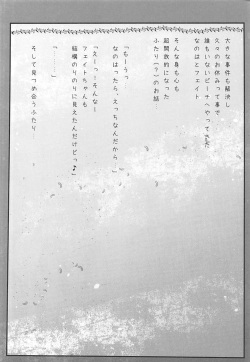 大きな事件も解決し
久々のお休みって事で
誰もいないビーチへやってきた
なのはとフェイト
そんな身も心も
超開放的になった
ふたり(?)のお話
「もーっ
なのはったら、えっちなんだから」
「えーっ!そんなー
フェイトちゃんも
結構のりのりに見えたんだけどっ♪」
「……」
そして見つめ合うふたり